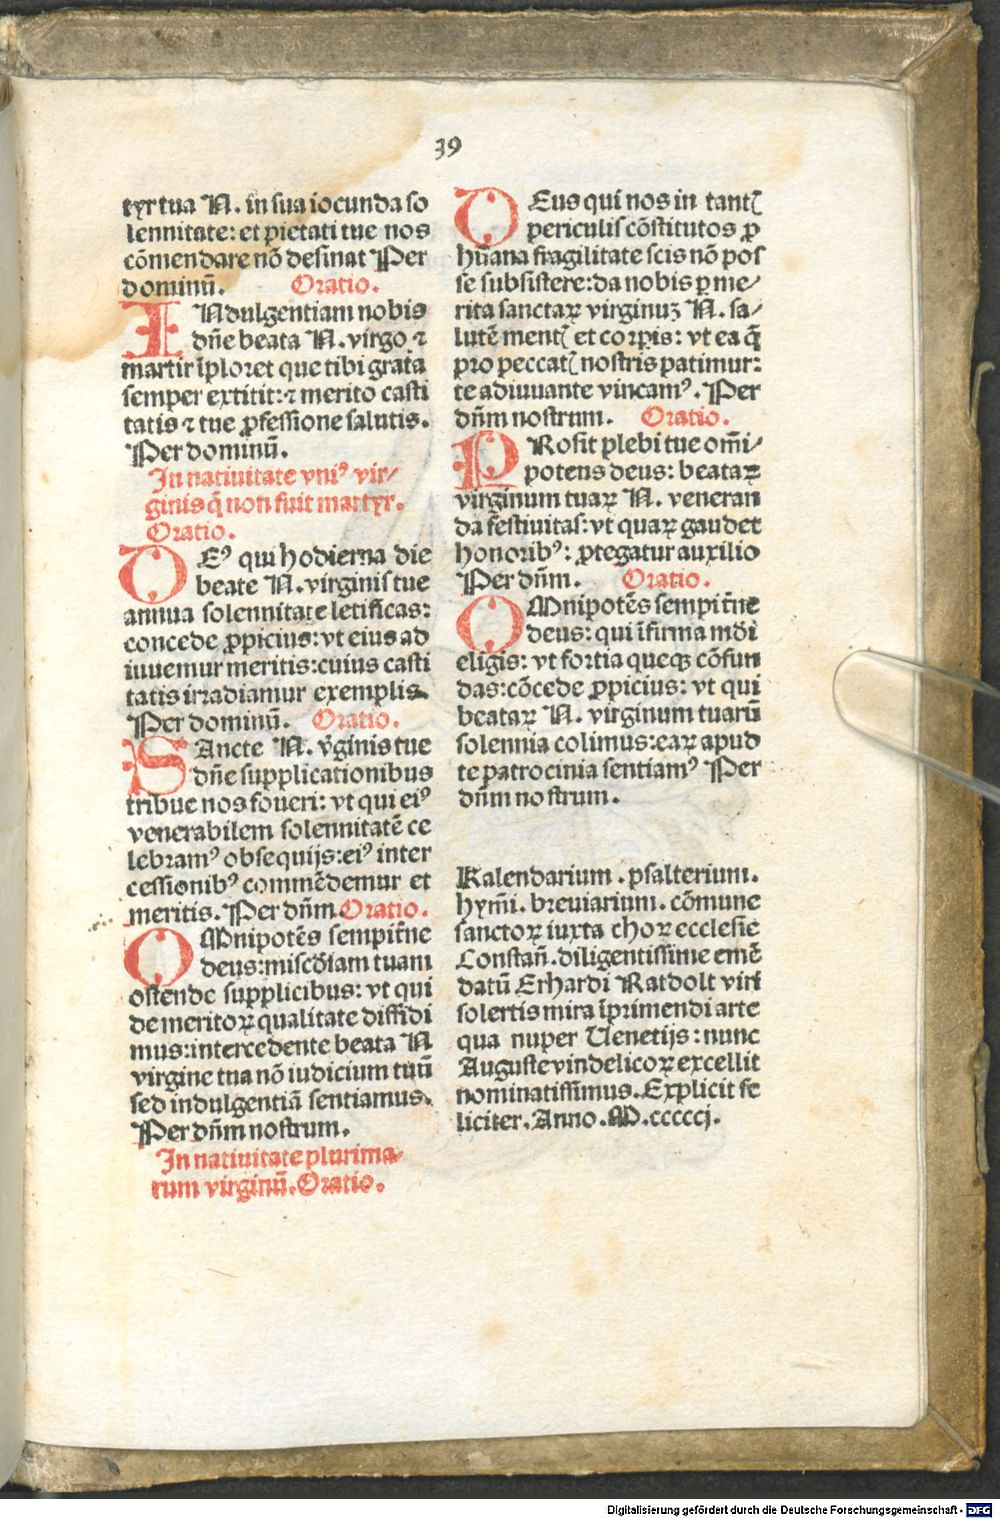 39
tyr tua N. in sua iocunda so
lennitate: et pietati tue nos
cōmendare nō desinat Per
dominū. Oratio.
INdulgentiam nobis
dn̄e beata N. virgo ⁊
martir īploret que tibi grata
semper extitit: ⁊ merito casti
tatis ⁊ tue ꝓfessione salutis.
Per dominū.
In natiuitate vniꝰ vir⸗
ginis q̄ non fuit martyr.
Oratio.
DEꝰ qui hodierna die
beate N. virginis tue
annua solennitate letificas:
concede ꝓpicius: vt eius ad
iuuemur meritis: cuius casti
tatis irradiamur exemplis
Per dominū. Oratio.
SAncte N. v̄ginis tue
dn̄e supplicationibus
tribue nos foueri: vt qui eiꝰ
venerabilem solennitatē ce
lebramꝰ obsequijs: eiꝰ inter
cessionibꝰ commēdemur et
meritis. Per dn̄m Oratio.
OMnipotēs sempit̄ne
deus: mis̄cdiam tuam
ostende supplicibus: vt qui
de meritoꝝ qualitate diffidi
mus: intercedente beata N
virgine tua nō iudicium tuū
sed indulgentiā sentiamus.
Per dn̄m nostrum.
In natiuitate plurima⸗
rum virginū. Oratio.
DEus qui nos in tantꝭ
periculis cōstitutos ꝓ
hūana fragilitate scis nō pos
se subsistere: da nobis ꝑ me⸗
rita sanctaꝝ virginuꝫ N. sa⸗
lutē mentꝭ et corꝑis: vt ea q̄
pro peccatꝭ nostris patimur:
te adiuuante vincamꝰ. Per
dn̄m nostrum. Oratio.
PRosit plebi tue om̄i⸗
potens deus: beataꝝ
virginum tuaꝝ N. veneran
da festiuitas: vt quaꝝ gaudet
honoribꝰ: ꝓtegatur auxilio
Per dn̄m. Oratio.
OMnipotēs sempit̄ne
deus: qui īfirma mūdi
eligis: vt fortia queqꝫ cōfun
das: cōcede ꝓpicius: vt qui
beataꝝ N. virginum tuarū
solennia colimus: eaꝝ apud
te patrocinia sentiamꝰ Per
dn̄m nostrum.
Kalendarium . psalterium.
hym̄i. breuiarium. cōmune
sanctoꝝ iuxta choꝝ ecclesie
Constan̄. diligentissime emē
datū Erhardi Ratdolt viri
solertis mira īprimendi arte
qua nuper Uenetijs: nunc
Auguste vindelicoꝝ excellit
nominatissimus. Explicit fe
liciter. Anno. M. cccccj.
Digitalisierung gefördert durch die Deutsche Forschungsgemeinschaft - DFG